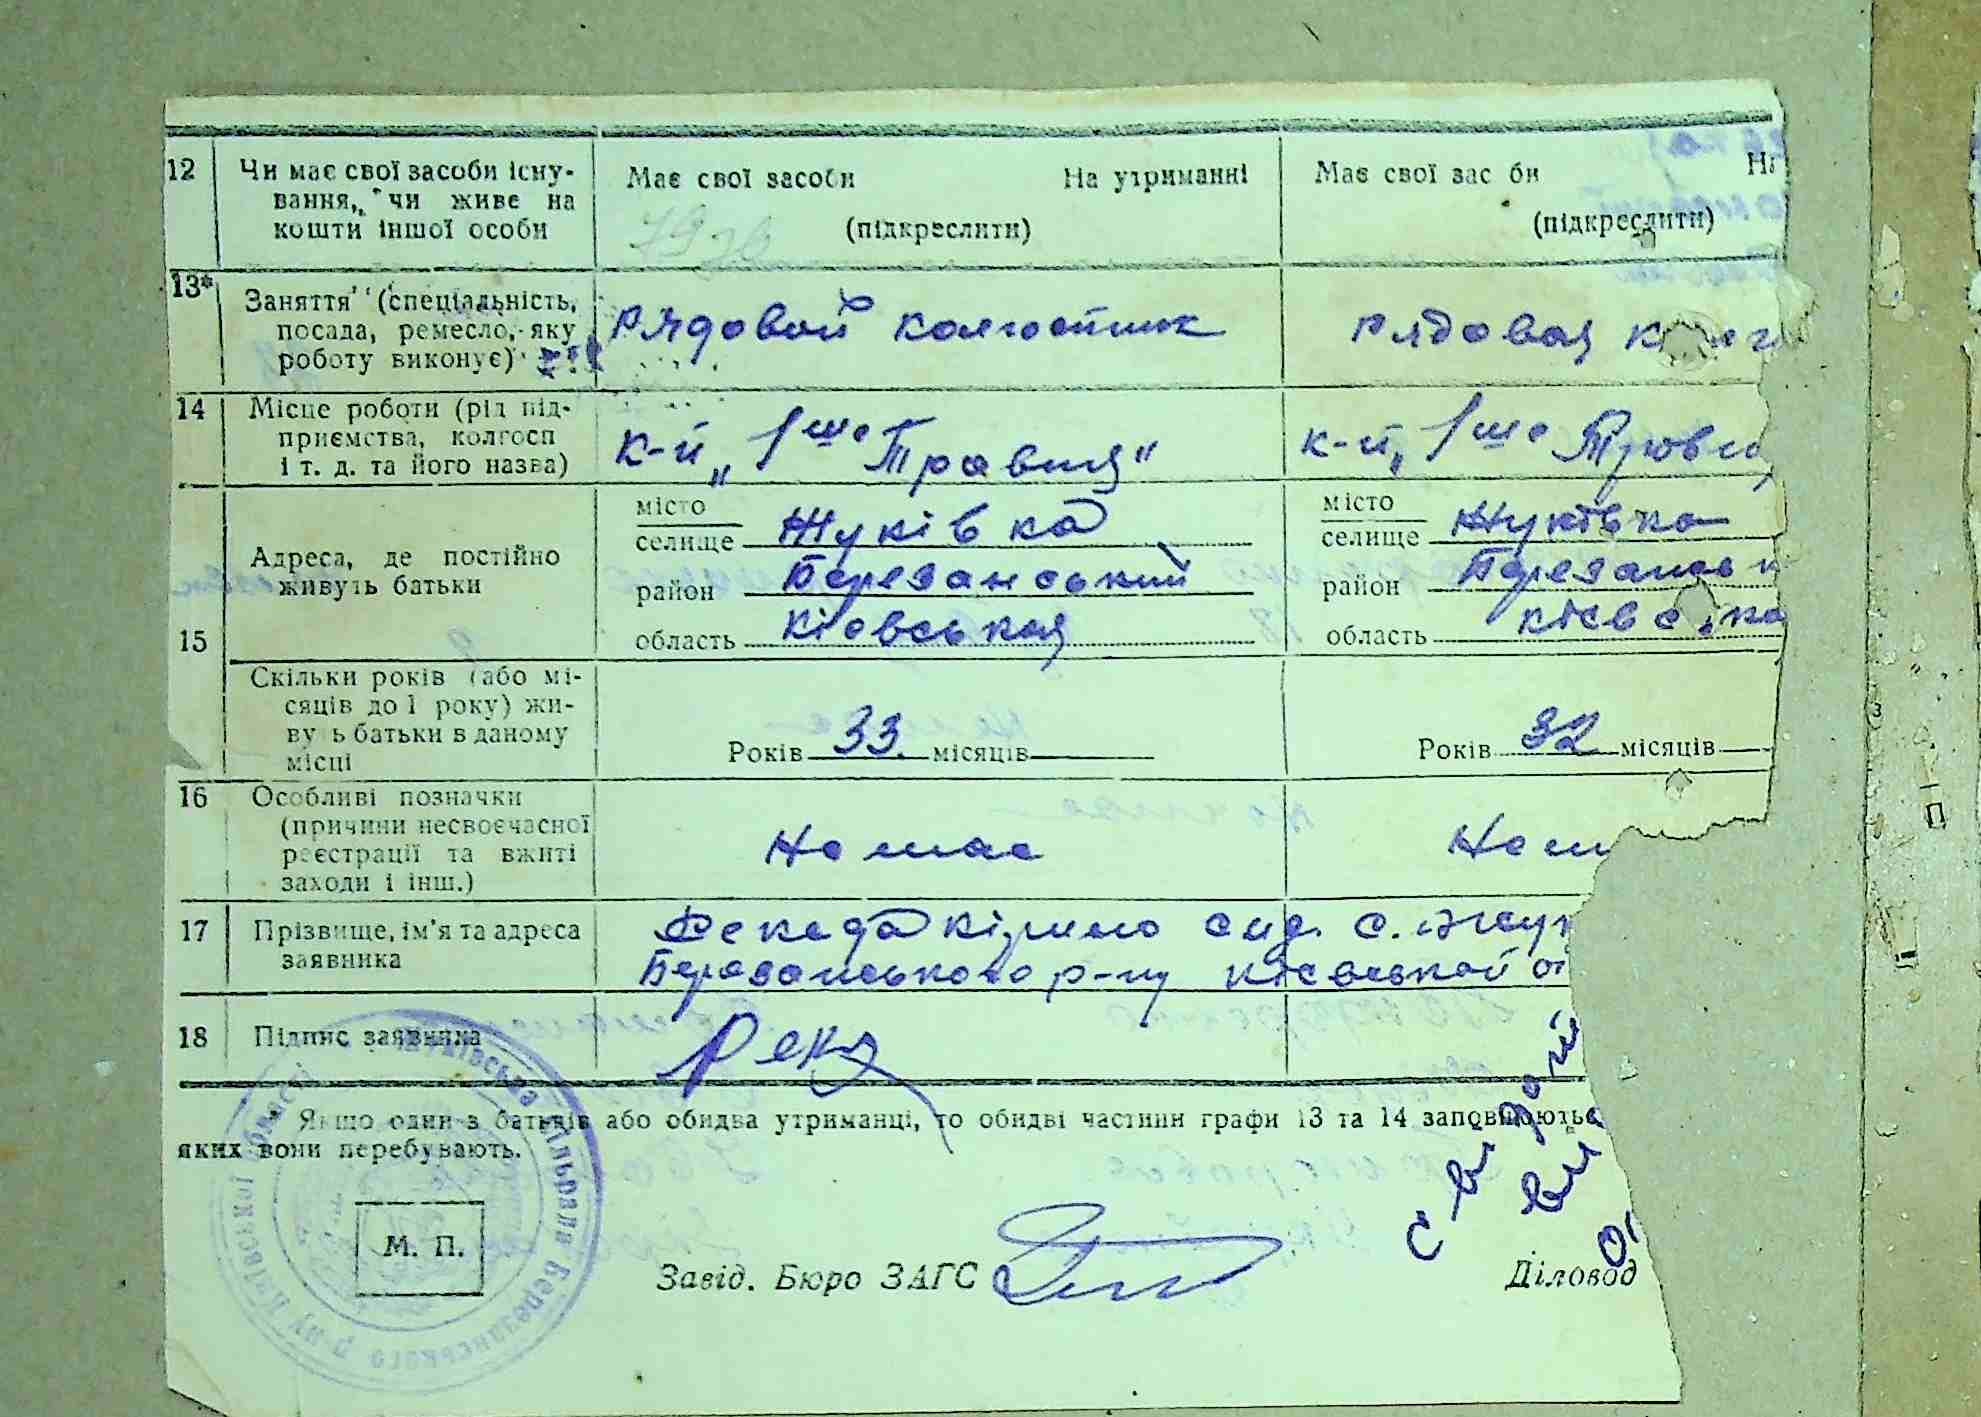 12 Чи має свої засоби існу-
вання, чи живе на
кошти іншої особи
Має свої засоби На утриманні
(підкреслити)
Має свої зас би На
(підкреслити)
13* Заняття (спеціальність,
посада, ремесло, яку
роботу виконує)
Рядовой колгостник
Рядовая к лг
14 Місце роботи (рід під-
приємства, колгосп
і т. д. та його назва)
к-й „1ше Травня"
к-й „1ше Травня
15 Адреса, де постійно
живуть батьки
місто
селище Жуківка
район Березанський
область Кієвськая
місто
селище Жуківка
район Березанськ
область Кієвська
Скільки років (або мі-
сяців до 1 року) жи-
ву ь батьки в даному
місці
Років 33. місяців
Років 32 місяців
16 Особливі позначки
(причини несвоєчасної
реєстрації та вжиті
заходи і інш.)
Немає
Нем
17 Прізвище, ім'я та адреса
заявника
с. Жук
Березанського р-ну Кієвської об
18 Підпис заявника
* Якщо один з батьків або обидва утриманці, то обидві частини графи 13 та 14 заповнюються
яких вони перебувають.
М. П.
Завід. Бюро ЗАГС
Діловод